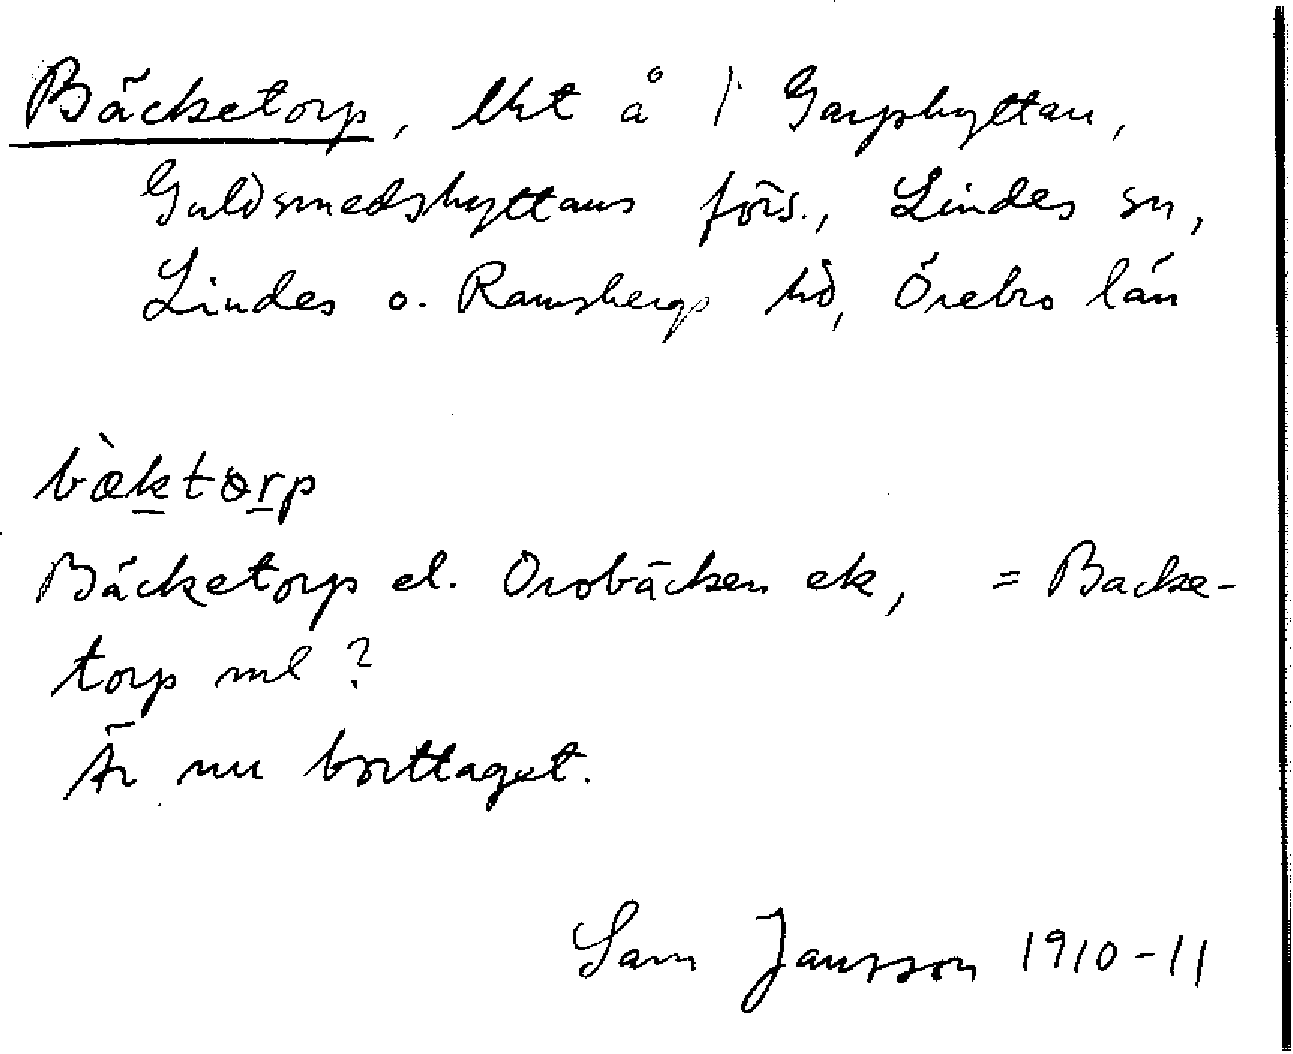 Bäcketorp, lht å 1 Garphyttan,
Guldsmedshyttans förs., Lindes sn,
Lindes o. Ramsbergs hd, Örebro län
bæ̀ktɵrp
Bäcketorp el. Orobäcken ek, = Backe-
torp ml ?
Är nu borttaget.
Sam Jansson 1910-11